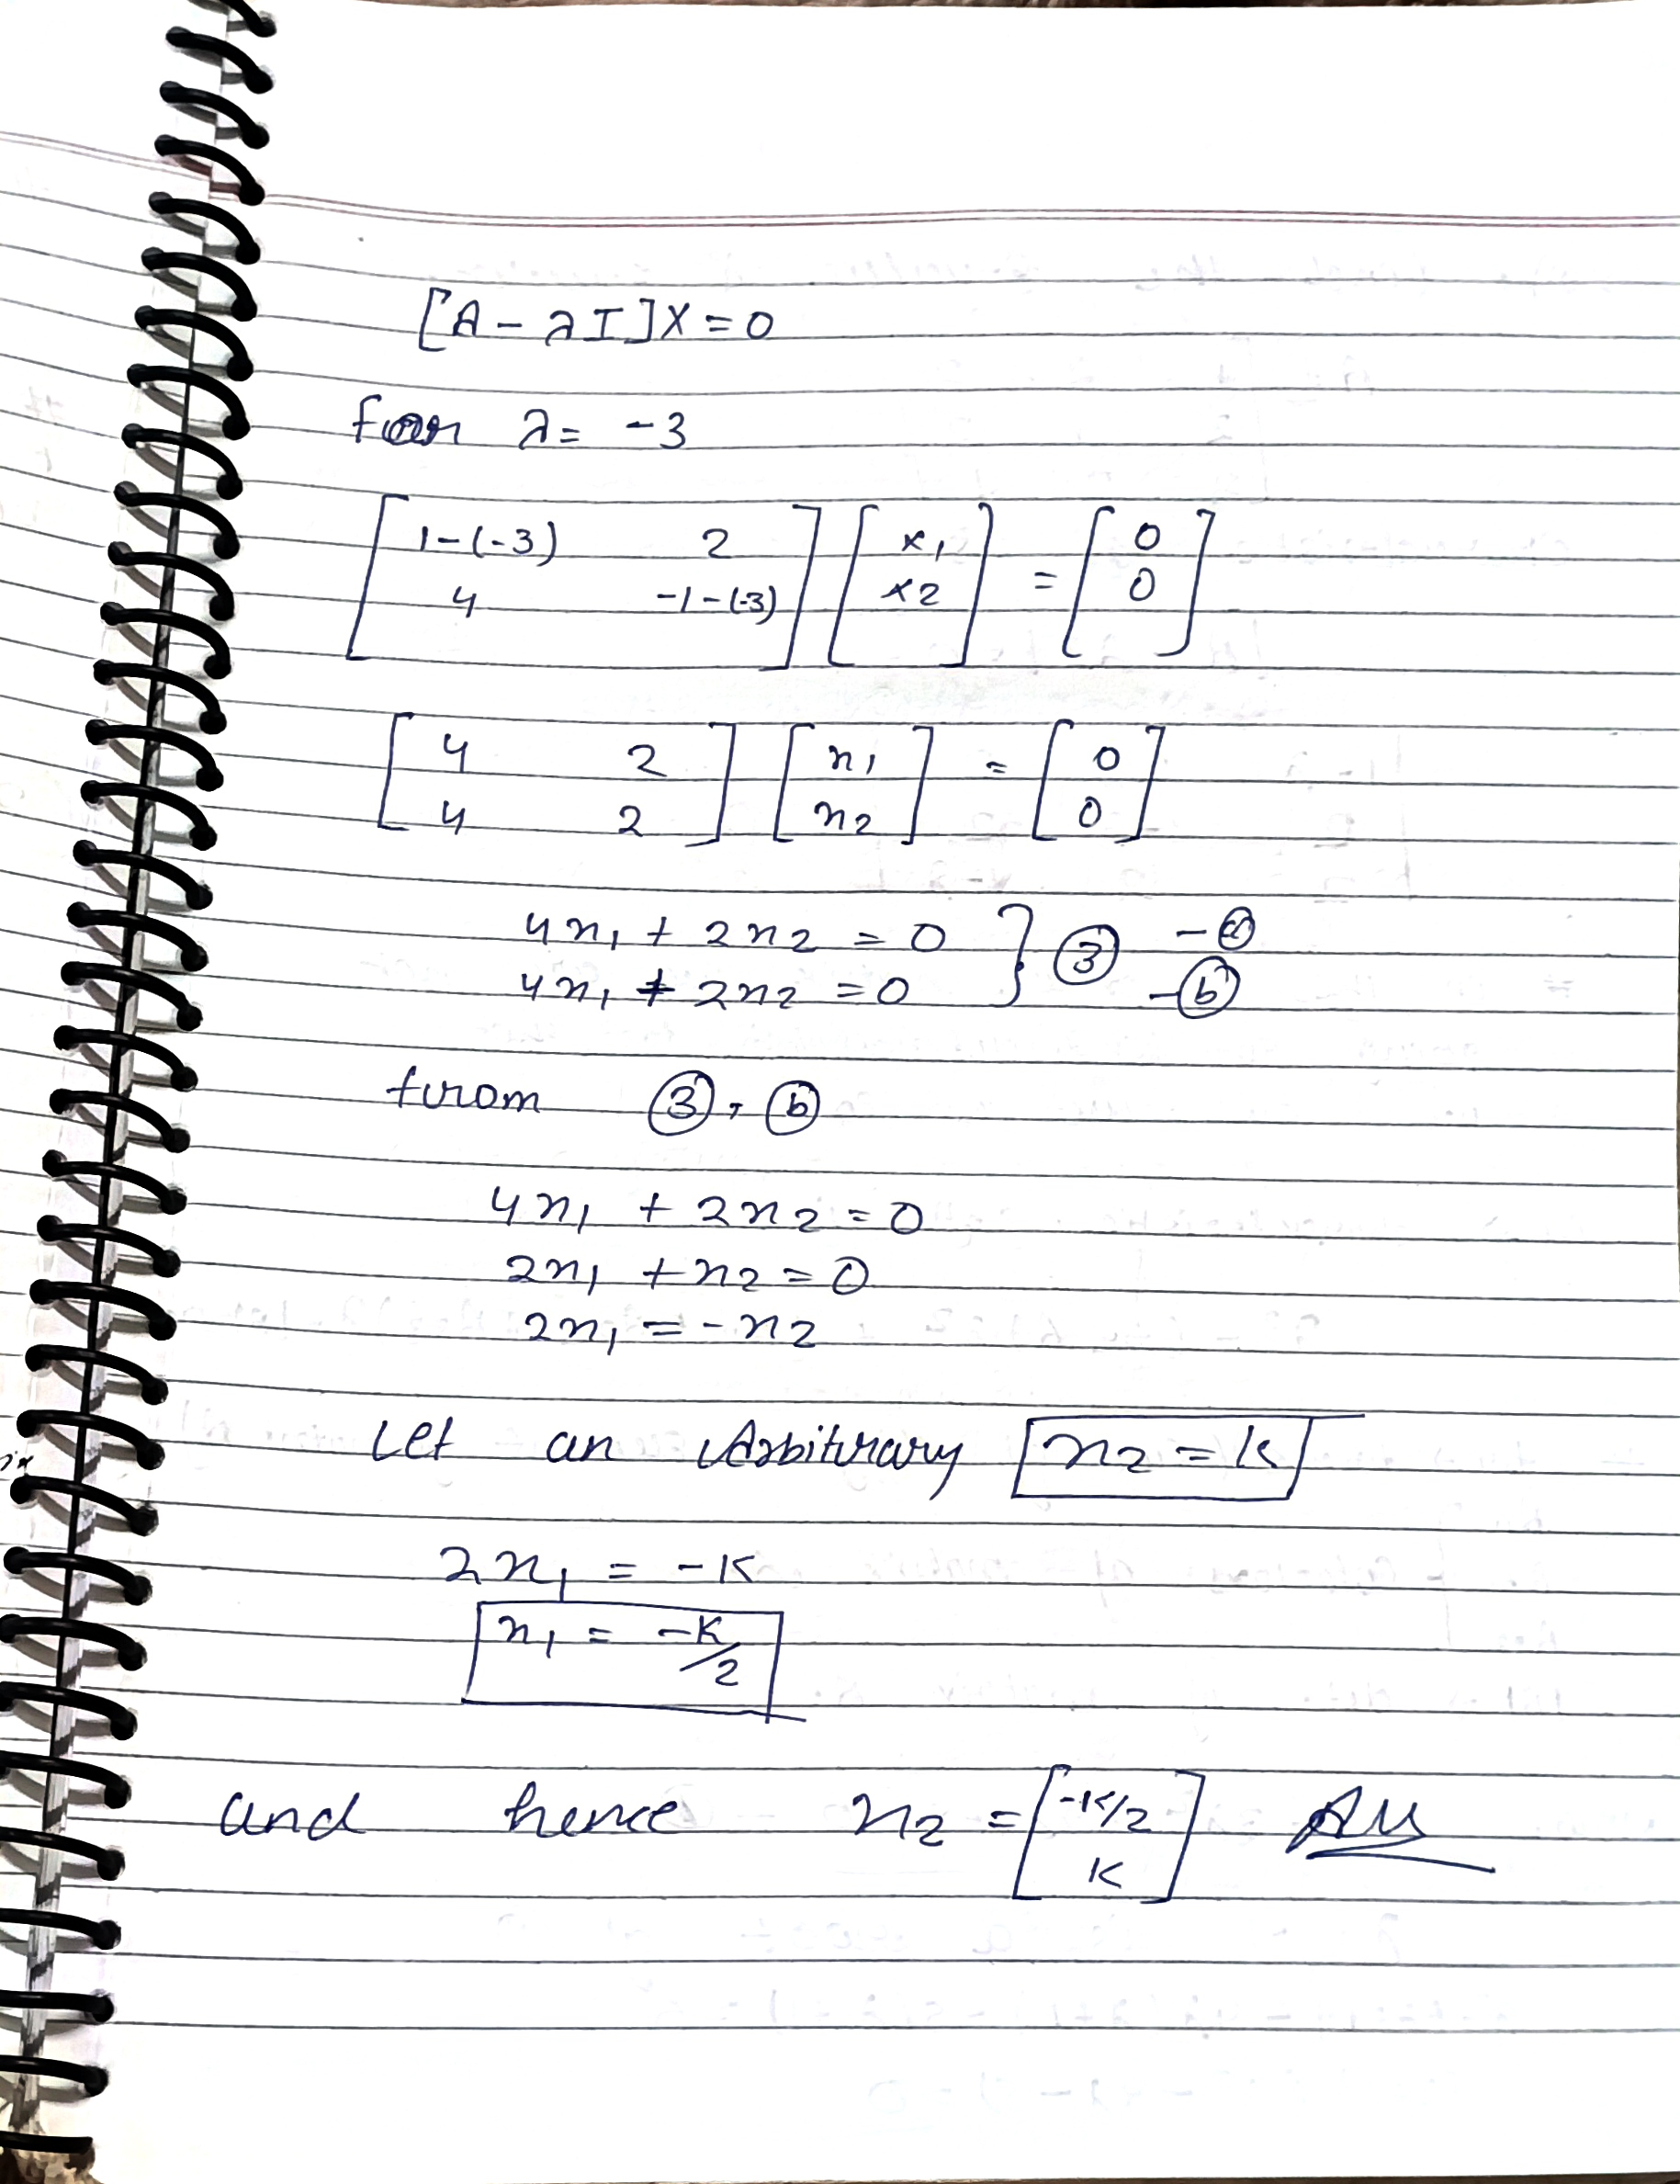 [A - λI]X = 0
for λ = -3
[1-(-3) 2
4 -1-(-3)] [x1
x2] = [0
0]
[4 2
4 2] [x1
x2] = [0
0]
4x1 + 2x2 = 0 } ③ - ⓐ
4x1 + 2x2 = 0 - ⓑ
from ③, ⓑ
4x1 + 2x2 = 0
2x1 + x2 = 0
2x1 = -x2
Let an Arbitrary x2 = K
2x1 = -K
x1 = -K/2
and hence x2 = [-K/2
K] Ans